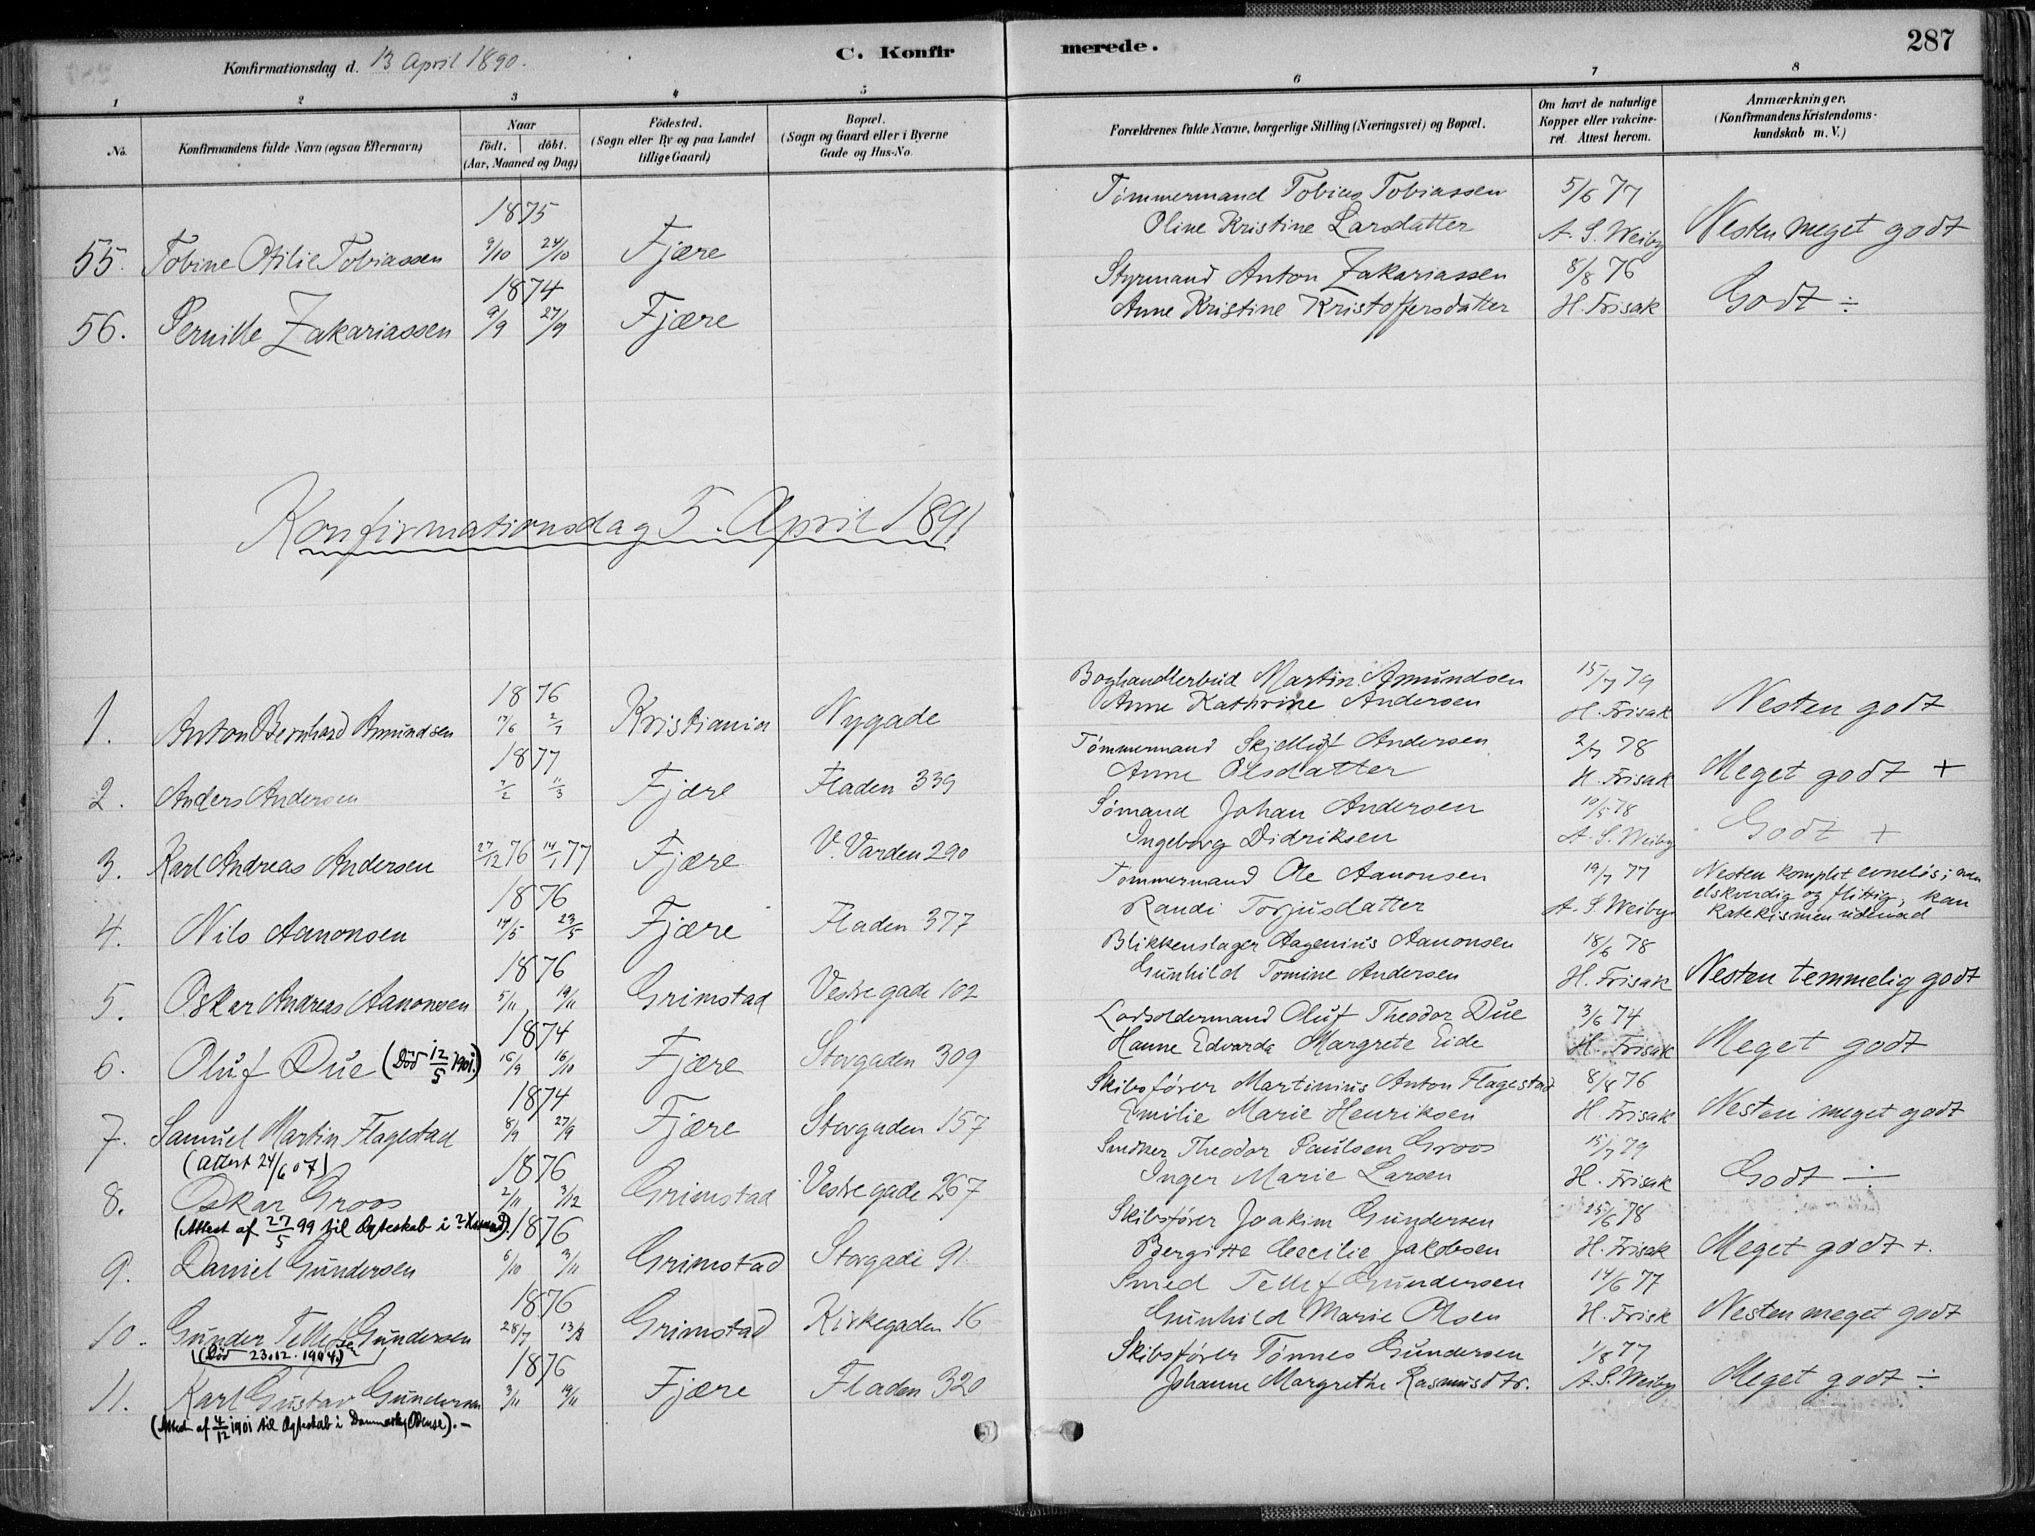 Konfirmationsdag d. 13 April 1890.
C. Konfirmerede.
287
1 2 3 4 5 6 7 8
No.
Konfirmandens fulde Navn (ogsaa Efternavn)
Naar
födt. döbt.
(Aar, Maaned og Dag)
Födested.
(Sogn eller By og paa Landet
tillige Gaard)
Bopæl.
(Sogn og Gaard eller i Byerne
Gade og Hus-No.
Forældrenes fulde Navne, borgerlige Stilling (Næringsvei) og Bopæl.
Om havt de naturlige
Kopper eller vakcine-
ret. Attest herom.
Anmærkninger.
(Konfirmandens Kristendoms-
kundskab m. V.)
1875
Tømmermand Tobias Tobiassen 5/6 77
55. Tobine Otilie Tobiassen 9/10 24/10 Fjære Oline Kristine Larsdatter A. S. Weiby Nesten meget godt
1874
Styrmand Anton Zakariassen 8/8 76
56. Pernille Zakariassen 9/9 27/9 Fjære Anne Kristine Kristoffersdatter H. Frisak Godt ÷
Konfirmationsdag 5. April 1891
1876
Boghandlerbud Martin Amundsen 15/7 79
1. Anton Bernhard Amundsen 17/6 2/7 Kristiania Nygade Anne Kathrine Andersen H. Frisak Nesten godt
1877
Tømmermand Skjelluf Andersen 2/7 78
2. Anders Andersen 7/2 11/3 Fjære Fladen 339 Anne Olsdatter H. Frisak Meget godt +
Sømand Johan Andersen 10/5 78
3. Karl Andreas Andersen 27/12 76 14/1 77 Fjære V. Varden 290 Ingeborg Didriksen A. S. Weiby Godt +
1876
Tømmermand Ole Aanonsen 19/7 77 Nesten komplet evneløs; men
elskverdig og flittig, kan
4. Nils Aanonsen 14/5 23/5 Fjære Fladen 377 Randi Torjusdatter A. S. Weiby katekismen udenad
1876
Blikkenslager Aagenius Aanonsen 18/6 78
5. Oskar Andreas Aanonsen 5/11 19/11 Grimstad Vestregade 102 Gunhild Tomine Andersen H. Frisak Nesten temmelig godt
1874
Lodsoldermand Oluf Theodor Due 3/6 74
6. Oluf Due (Död 12/5 1901.) 16/9 16/10 Fjære Storgaden 309 Hanne Edvarda Margrete Eide H. Frisak Meget godt
1874
Skibsfører Martinius Anton Flagestad 8/8 76
7. Samuel Martin Flagestad 8/9 27/9 Fjære Storgaden 157 Emilie Marie Henriksen H. Frisak Nesten meget godt
(Attest 24/6 07)
1876
Snedker Theodor Paulsen Groos 15/7 79
8. Oskar Groos 2/11 3/12 Grimstad Vestregade 267 Inger Marie Larsen H. Frisak Godt ÷
(Attest af 27/5 99 til Ægteskab i
1876
Skibsfører Joakim Gundersen 25/6 78
9. Daniel Gundersen 6/10 3/11 Grimstad Storgade 91. Bergitte Cecilie Jakobsen H. Frisak Meget godt +.
1876
Smed Tellef Gundersen 14/6 77
10. Gunder Tellef Gundersen 28/7 13/8 Grimstad Kirkegaden 16 Gunhild Marie Olsen H. Frisk Nesten meget godt
(Död 23.12.1904.)
1876
Skibsfører Tønnes Gundersen 1/8 77
11. Karl Gustav Gundersen 3/11 19/11 Fjære Fladen 320 Johanne Margrethe Rasmusdtr. A. S. Weiby Meget godt ÷
(Attest af 4/12 1901 til Ægteskab i Danmark, Odense). —